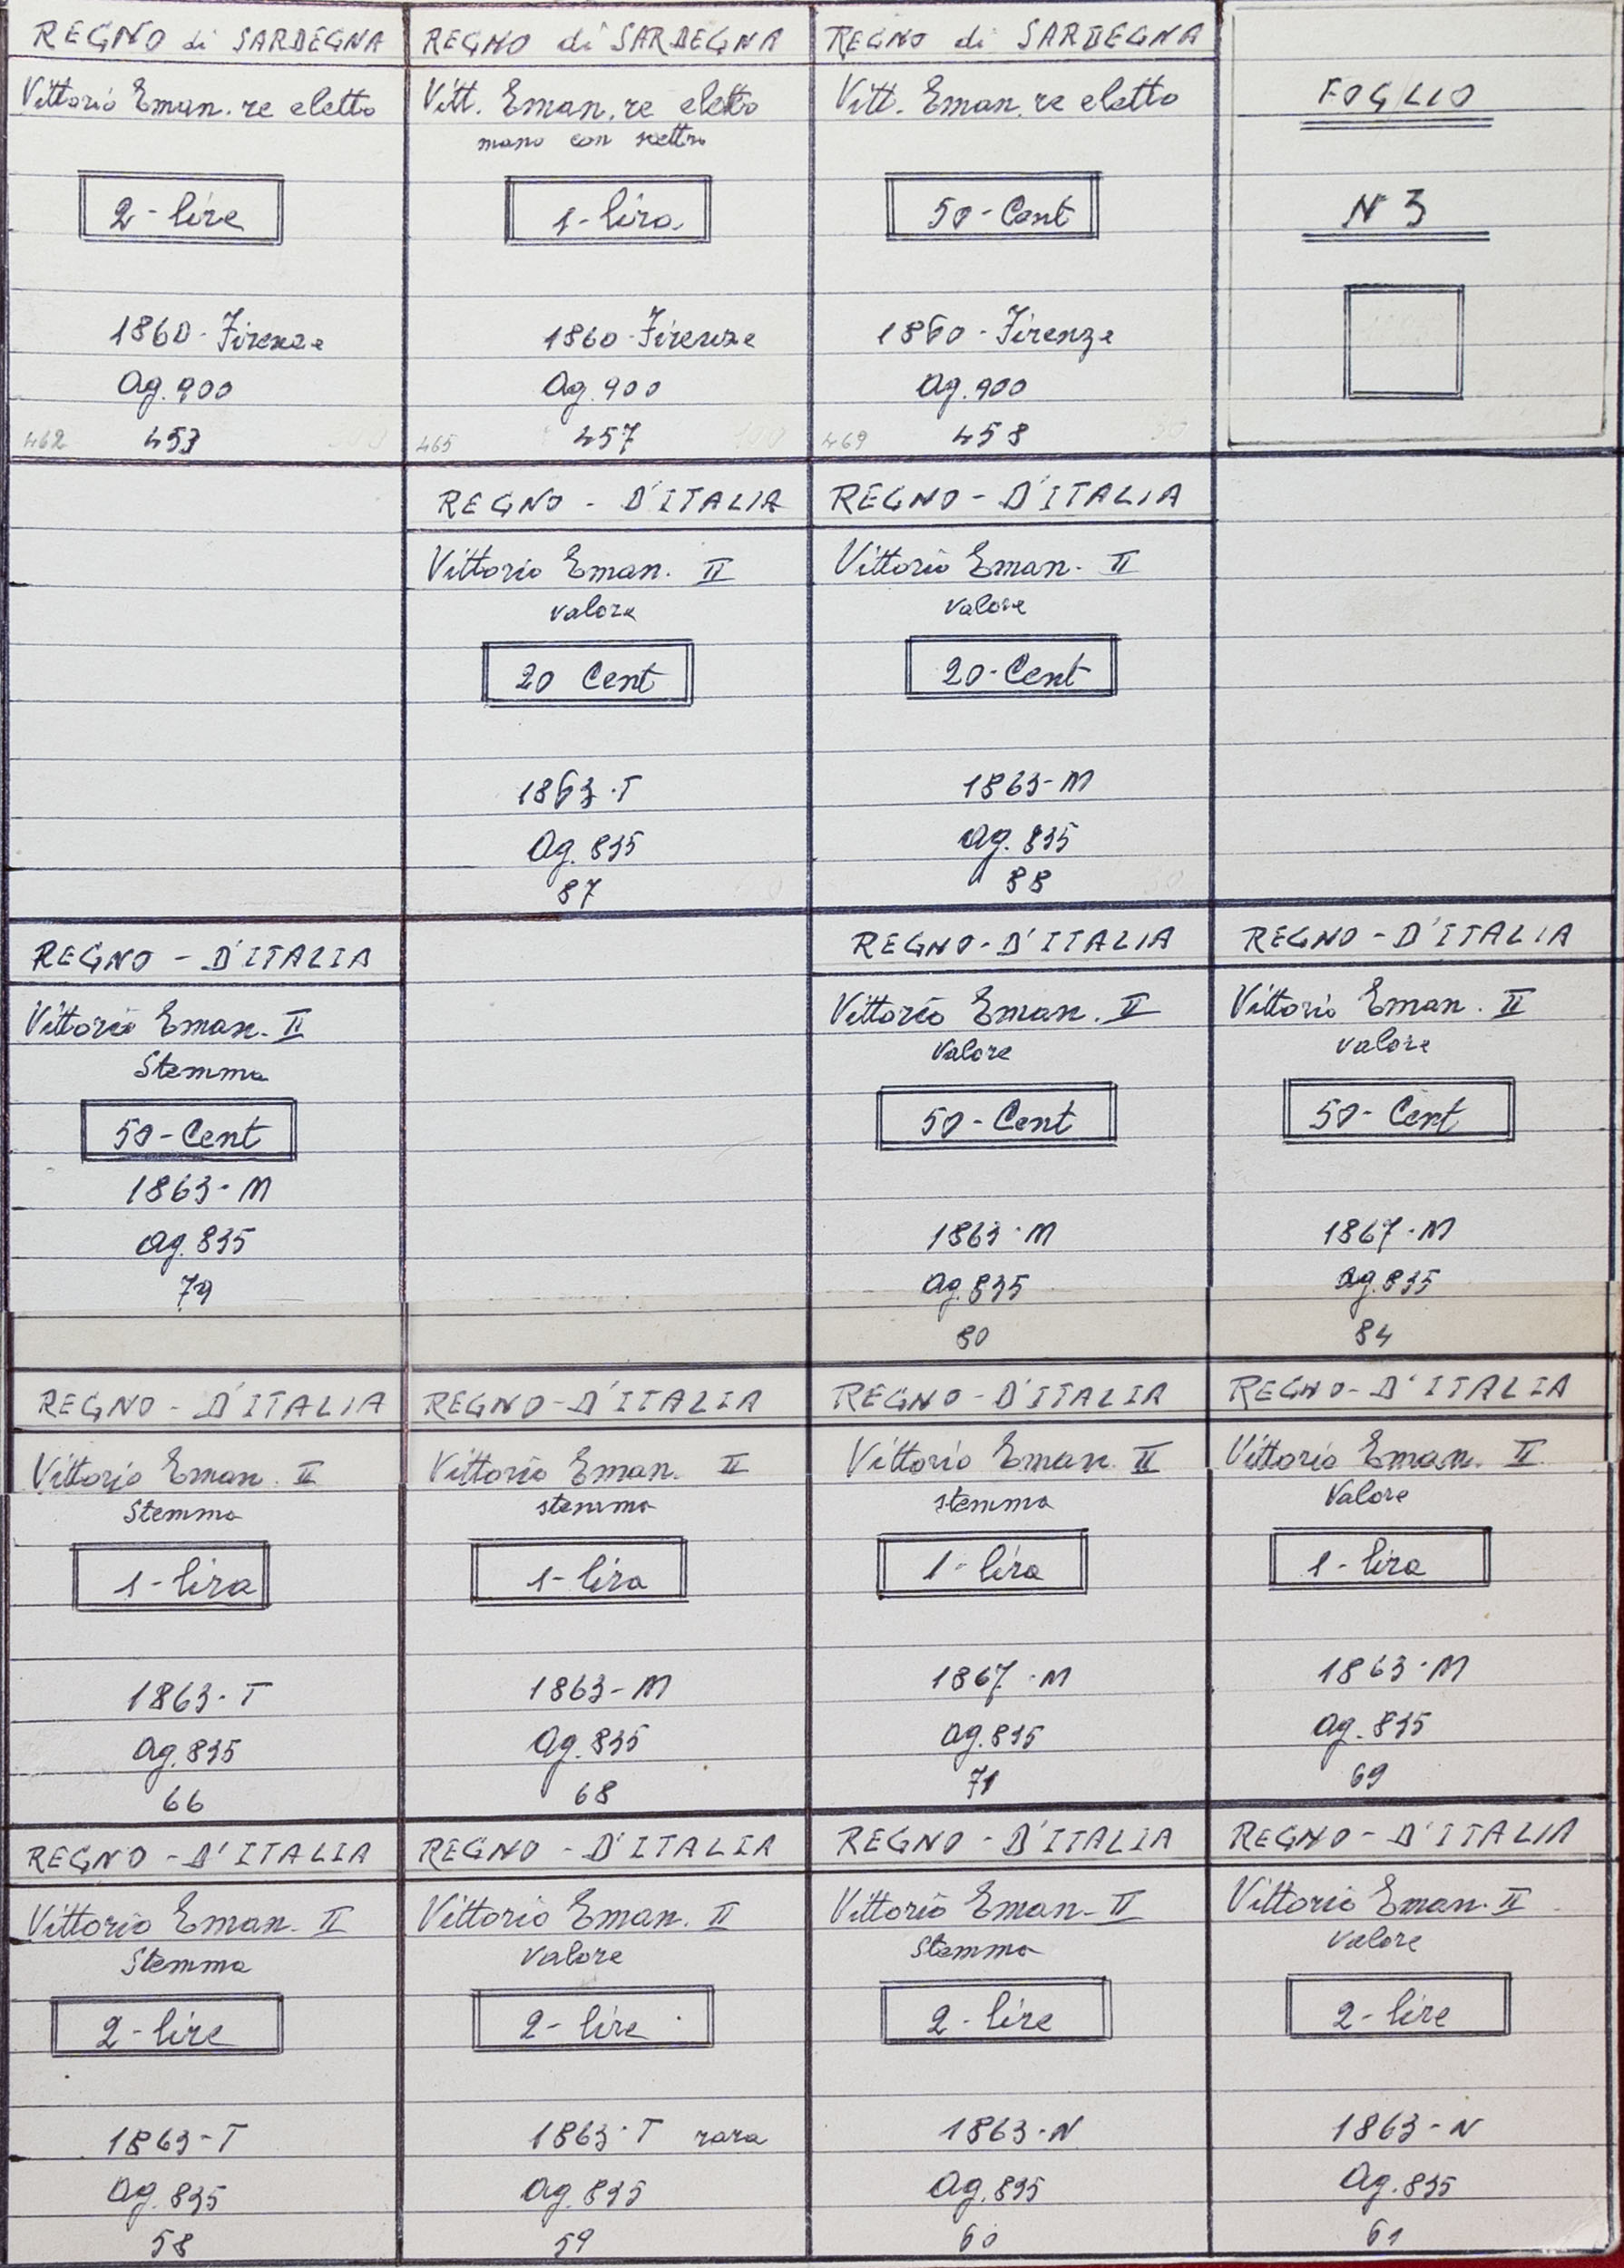 REGNO di SARDEGNA
Vittorio Eman. re eletto
2-lire
1860-Firenze
Ag.900
462 453
REGNO di SARDEGNA
Vitt. Eman. re eletto
mano con scettro
1-lira
1860-Firenze
Ag.900
465 457 100
REGNO di SARDEGNA
Vitt. Eman. re eletto
50-Cent
1860-Firenze
Ag.900
469 458
FOGLIO
N 3
REGNO - D'ITALIA
Vittorio Eman. II
valore
20 Cent
1863-T
Ag. 835
87
REGNO - D'ITALIA
Vittorio Eman. II
valore
20-Cent
1863-M
Ag. 835
88
REGNO - D'ITALIA
Vittorio Eman. II
Stemma
50-Cent
1863-M
Ag. 835
79
REGNO - D'ITALIA
Vittorio Eman. II
Valore
50-Cent
1863-M
Ag. 835
80
REGNO - D'ITALIA
Vittorio Eman. II
valore
50-Cent
1867-M
Ag. 835
84
REGNO - D'ITALIA
Vittorio Eman. II
Stemma
1-lira
1863-T
Ag. 835
66
REGNO - D'ITALIA
Vittorio Eman. II
stemma
1-lira
1863-M
Ag. 835
68
REGNO - D'ITALIA
Vittorio Eman II
stemma
1-lira
1867-M
Ag. 835
71
REGNO - D'ITALIA
Vittorio Eman. II
Valore
1-lira
1863-M
Ag. 835
69
REGNO - D'ITALIA
Vittorio Eman. II
Stemma
2-lire
1863-T
Ag. 835
58
REGNO - D'ITALIA
Vittorio Eman. II
Valore
2-lire
1863-T rara
Ag. 835
59
REGNO - D'ITALIA
Vittorio Eman. II
Stemma
2-lire
1863-N
Ag. 835
60
REGNO - D'ITALIA
Vittorio Eman. II
valore
2-lire
1863-N
Ag. 835
61